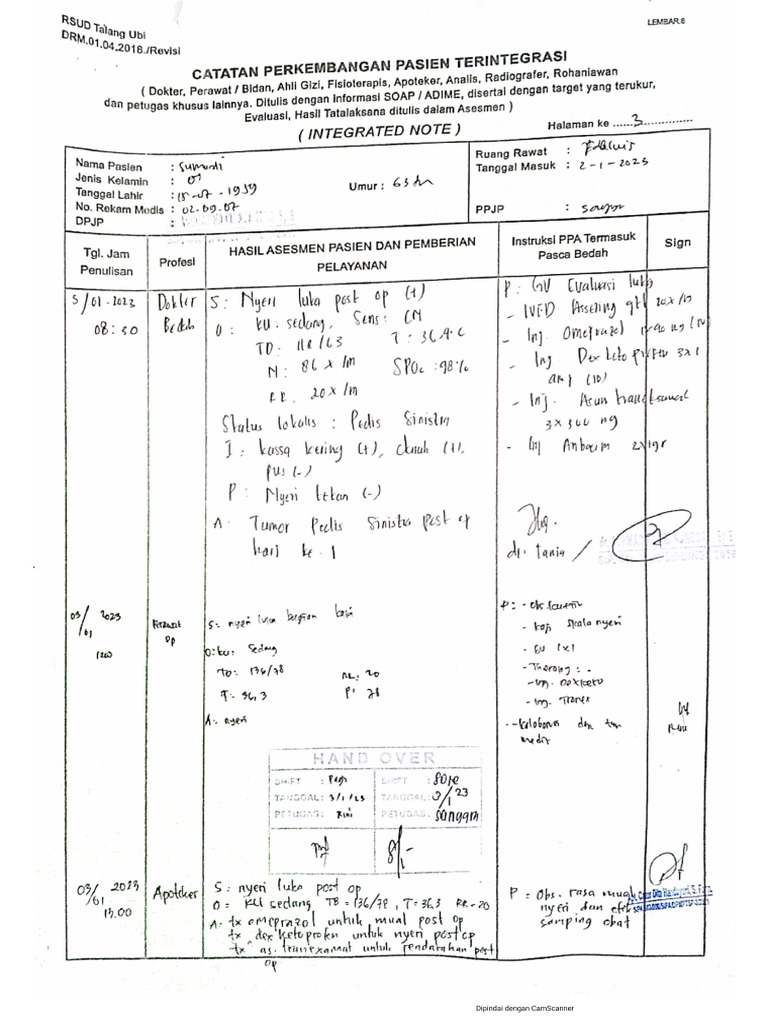 RSUD Talang Ubi
DRM.01.04.2018./Revisi
LEMBAR.8
CATATAN PERKEMBANGAN PASIEN TERINTEGRASI
( Dokter, Perawat / Bidan, Ahli Gizi, Fisioterapis, Apoteker, Analis, Radiografer, Rohaniawan
dan petugas khusus lainnya. Ditulis dengan Informasi SOAP / ADIME, disertai dengan target yang terukur,
Evaluasi, Hasil Tatalaksana ditulis dalam Asesmen )
( INTEGRATED NOTE )
Halaman ke ......3...............
Nama Pasien : Sumardi
Jenis Kelamin :
Tanggal Lahir : 15-07-1959
No. Rekam Medis : 02.09.07
DPJP :
Umur : 63 th
Ruang Rawat :
Tanggal Masuk : 2-1-2023
PPJP :
Tgl. Jam Penulisan
Profesi
HASIL ASESMEN PASIEN DAN PEMBERIAN PELAYANAN
Instruksi PPA Termasuk Pasca Bedah
Sign
5/01-2023
08:30
Dokter
Bedah
S: Nyeri luka post op (+)
O: KU. sedang, Sens: CM
TD: 118/63 T: 36,4°C
N: 86 x/m SPO2: 98%
RR. 20x/m
Status lokalis : Pedis Sinistra
I: kassa kering (+), darah (+),
pus (-)
P: Nyeri tekan (-)
A. Tumor Pedis Sinistra post op
hari ke 1
P: GV Evaluasi luka
- IVFD Asering gtt 20x/m
- Inj. Omeprazol
- Inj Dexketoprofen 3x1
amp (10)
- Inj. Asam tranexsamat
3x500 mg
- Inj Anbacim 2x1gr
dr. tania /
03/01 2023
Perawat
S: nyeri luka bagian kaki
O: ku: Sedang
TD: 136/78 RR: 20
T: 36,3 P: 78
A: nyeri
P: - Obs.
- Kaji skala nyeri
- GV 1x1
- Therapy : -
- Inj. Dexketo
- Inj. Tranex
- Kolaborasi dan tim
medis
Rini
HAND OVER
SHIFT : Pagi
TANGGAL: 3/1/23
PETUGAS: Rini
SHIFT : Sore
TANGGAL: 3/1 23
PETUGAS:
03/01 2023
13.00
Apoteker
S: nyeri luka post op
O = KU sedang TD = 136/78, T = 36,3 RR - 20
A: tx omeprazol untuk mual post op
tx dexketoprofen untuk nyeri post op
tx as. tranexamat untuk pendarahan post
op
P = Obs. rasa mual
nyeri dan efek
samping obat
Dipindai dengan CamScanner